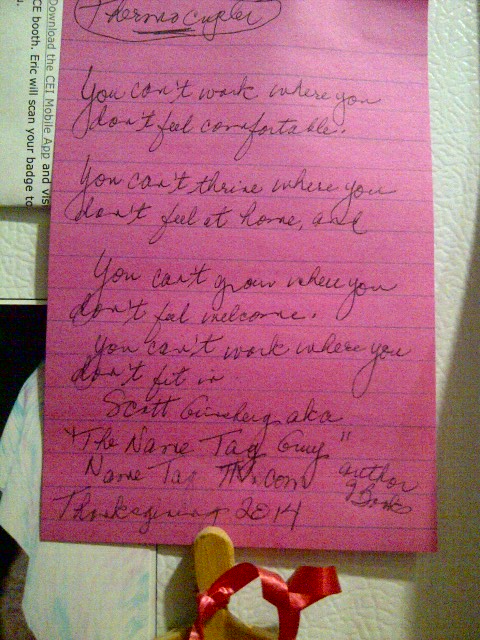 Thermocupler
You can't work where you
don't feel comfortable.
You can't thrive where you
don't feel at home, and
You can't grow where you
don't feel welcome.
You can't work where you
don't fit in
Scott Ginsberg aka
"The Name Tag Guy"
Name Tag TV.com author
9 Books
Thanksgiving 2014
Download the CEI Mobile App and vis
CE booth. Eric will scan your badge to